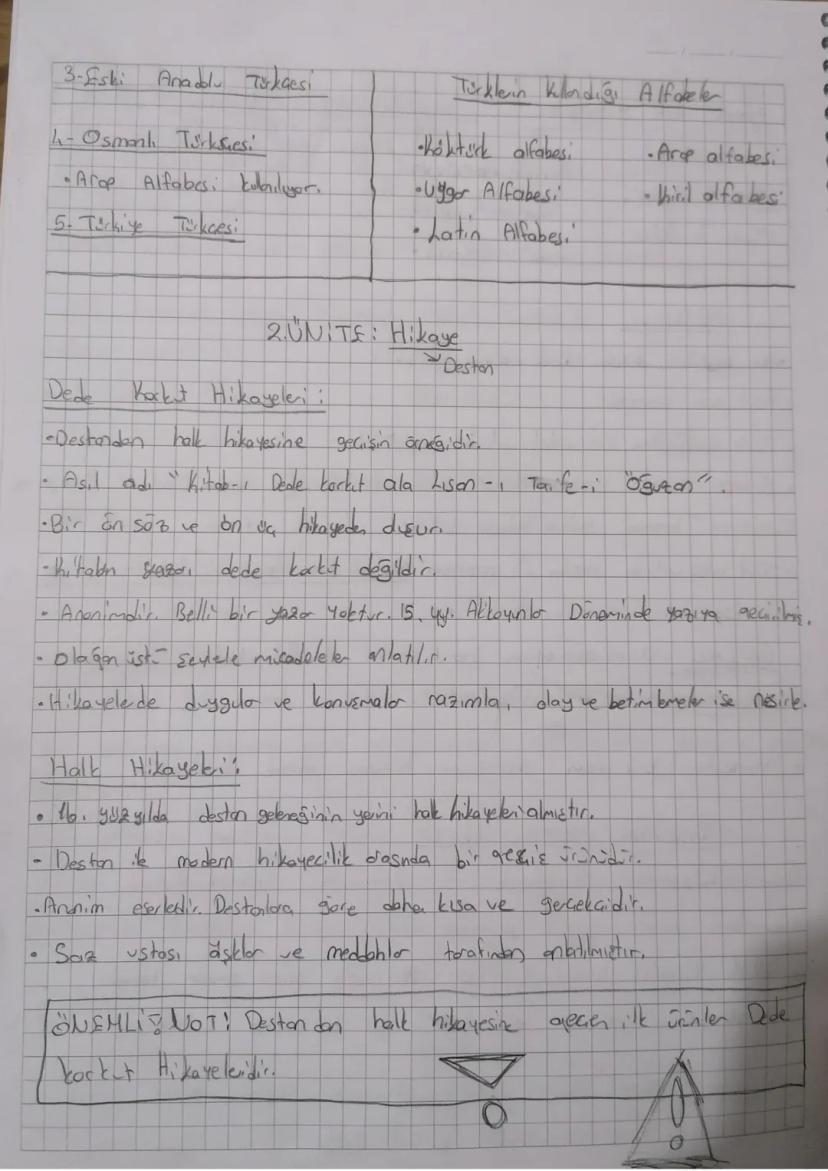 3-Eski Anadolu Türkçesi
4- Osmanlı Türkçesi
• Arap Alfabesi kullanılıyor.
5. Türkiye Türkçesi
Türklerin Kullandığı Alfabeler
• Köktürk alfabesi
• Arap alfabesi
• Uygur Alfabesi
• Kiril alfabesi
• Latin Alfabesi
2.ÜNİTE: Hikaye
Destan
Dede Korkut Hikayeleri:
-Destandan halk hikayesine geçişin örneğidir.
• Asıl adı "Kitab-ı Dede Korkut ala Lisan-ı Taife-i Oğuzan".
• Bir ön söz ve on üç hikayeden oluşur.
- Kitabın yazarı dede korkut değildir.
• Anonimdir. Belli bir yazar yoktur. 15. yy. Akkoyunlar Döneminde yazıya geçirilmiş.
• Olağan üstü şeylerle mücadeleler anlatılır.
• Hikayelerde duygular ve konuşmalar nazımla, olay ve betimlemeler ise nesirle.
Halk Hikayeleri:
• 16. yüzyılda destan geleneğinin yerini halk hikayeleri almıştır.
- Destan ile modern hikayecilik arasında bir geçiş ürünüdür.
• Anonim eserlerdir. Destanlara göre daha kısa ve gerçekçidir.
• Saz ustası âşıklar ve meddahlar tarafından anlatılmıştır.
ÖNEMLİ NOT! Destandan halk hikayesine geçen ilk ürünler Dede
Korkut Hikayeleridir.